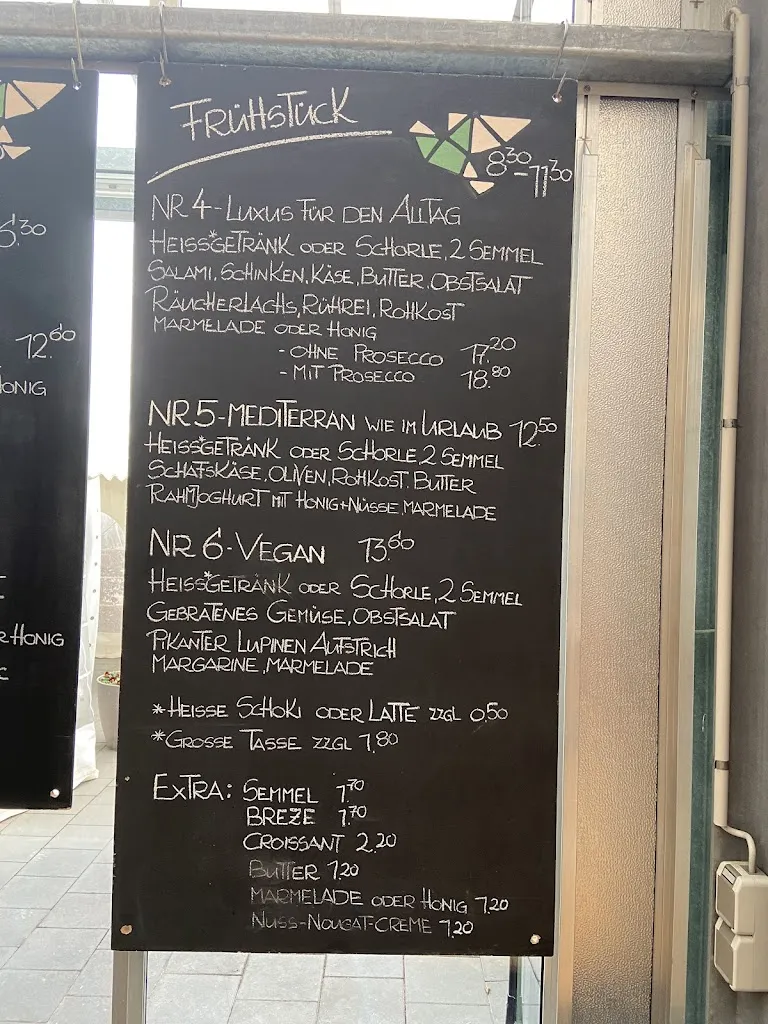 FRÜHSTÜCK
8³⁰-11³⁰
NR 4 - LUXUS FÜR DEN ALLTAG
HEISS*GETRÄNK ODER SCHORLE, 2 SEMMEL
SALAMI, SCHINKEN, KÄSE, BUTTER, OBSTSALAT
RÄUCHERLACHS, RÜHREI, ROHKOST
MARMELADE ODER HONIG
- OHNE PROSECCO 17.20
- MIT PROSECCO 18.80
NR 5 - MEDITERRAN WIE IM URLAUB 12.50
HEISS*GETRÄNK ODER SCHORLE, 2 SEMMEL
SCHAFSKÄSE, OLIVEN, ROHKOST, BUTTER
RAHMJOGHURT MIT HONIG+NÜSSE, MARMELADE
NR 6 - VEGAN 13.60
HEISS*GETRÄNK ODER SCHORLE, 2 SEMMEL
GEBRATENES GEMÜSE, OBSTSALAT
PIKANTER LUPINEN AUFSTRICH
MARGARINE, MARMELADE
*HEISSE SCHOKI ODER LATTE ZZGL 0,50
*GROSSE TASSE ZZGL 1,80
EXTRA: SEMMEL 1.70
BREZE 1.70
CROISSANT 2,20
BUTTER 1.20
MARMELADE ODER HONIG 1,20
NUSS-NOUGAT-CREME 1,20
12.60
HONIG